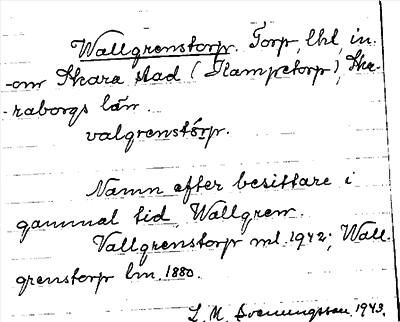 Wallgrenstorp. Torp, lhl, in-
om Skara stad (Kampetorp), Ska-
raborgs län.
valgrenstórp.
Namn efter besittare i
gammal tid, Wallgren.
Vallgrenstorp ml. 1942; Wall-
grenstorp lm. 1880.
L. M. Svenungsson. 1943.